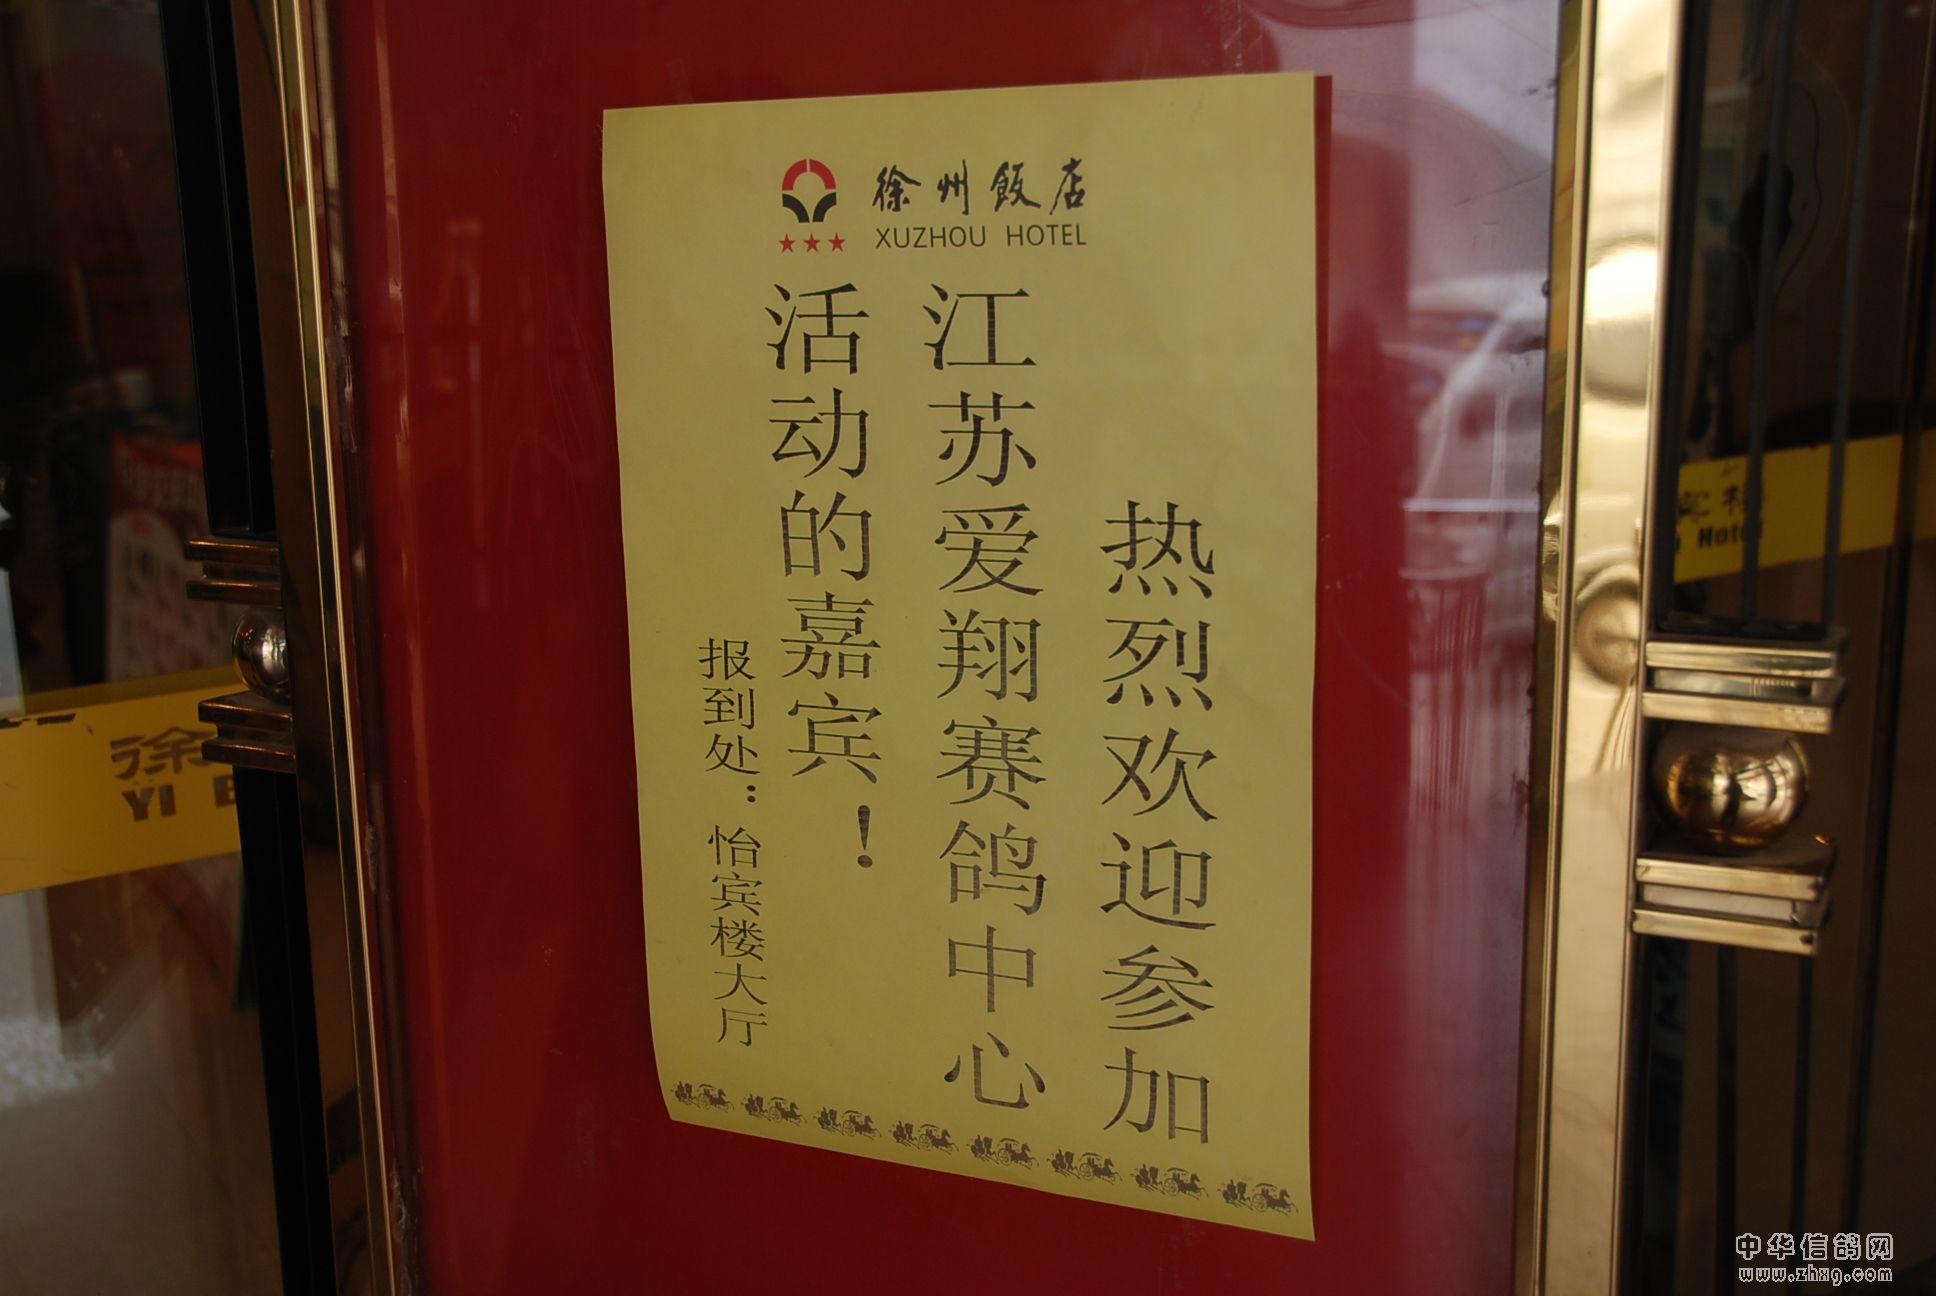 徐州飯店
XUZHOU HOTEL
热烈欢迎参加
江苏爱翔赛鸽中心
活动的嘉宾！
报到处：怡宾楼大厅
徐
YI B
Hotel
中华信鸽网
www.zhxg.com